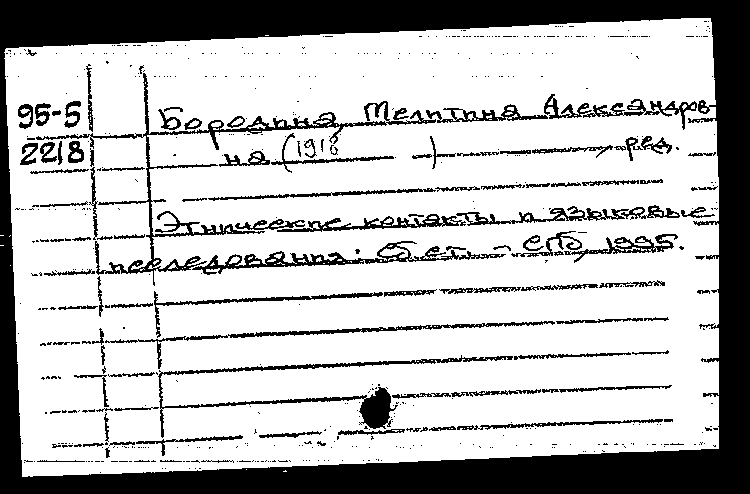 95-5 Бородина, Мелитина Александров-
2218 на (1918 ), ред.
Этнические контакты и языковые
исследования: Сб. ст. - СПб, 1995.